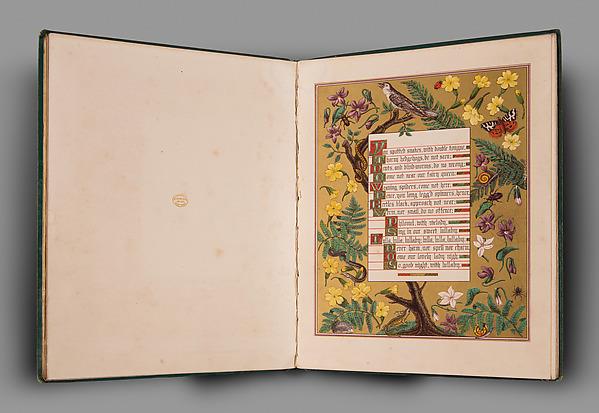 You spotted snakes, with double tongue,
Thorny hedgehogs, be not seen;
Newts, and blind-worms, do no wrong;
Come not near our fairy queen:
Weaving spiders, come not here;
Hence, you long legg'd spinners, hence:
Beetles black, approach not near;
Worm, nor snail, do no offence:
Philomel, with melody,
Sing in our sweet lullaby:
Lulla, lulla, lullaby; lulla, lulla, lullaby;
Never harm, nor spell nor charm,
Come our lovely lady nigh
So, good night, with lullaby.